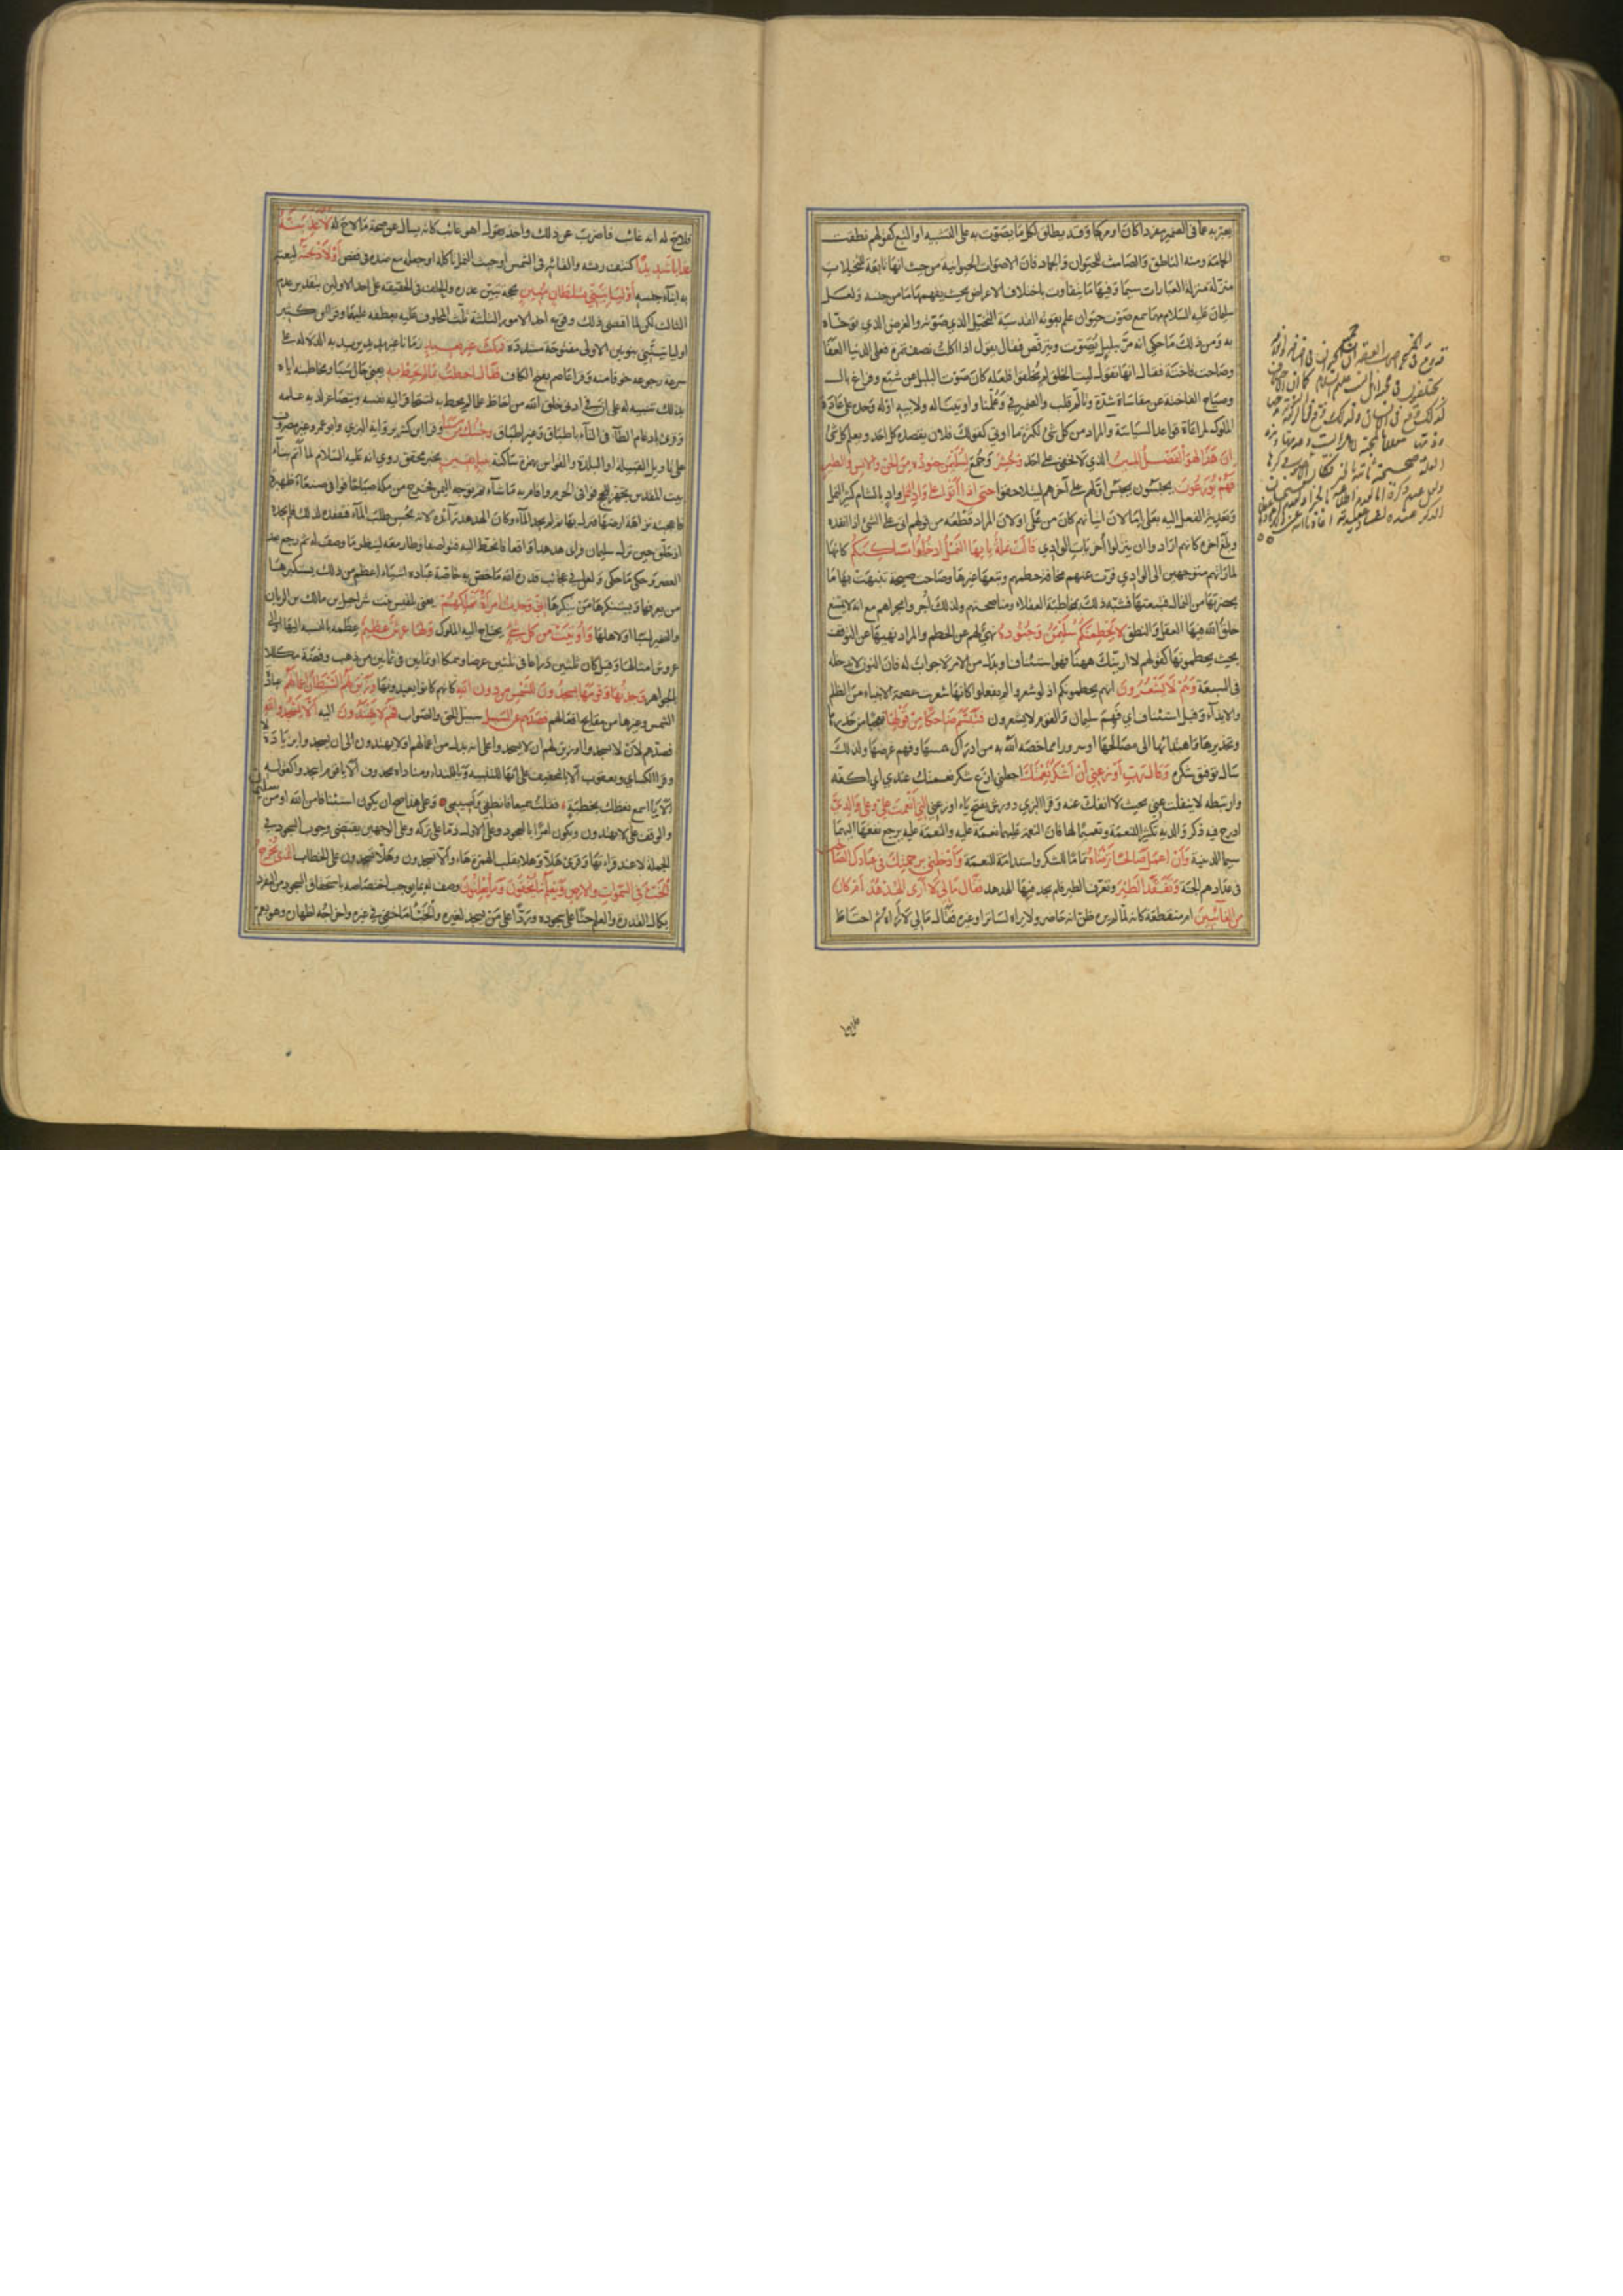 يعبر به عما فى الضمير مفردا كان او مركبا وقد يطلق لكل ما يصوت به على التشبيه او التبع كقولهم نطقت
الحمامة ومنه الناطق والصامت للحيوان والجماد فان الاصوات الحيوانية من حيث انها تابعة للتخيلات
منزلة منزلة العبارات سيما وفيها ما يتفاوت باختلاف الاغراض بحيث يفهمها ما من جنسه ولعل
سليمان عليه السلام مهما سمع صوت حيوان علم بقوته القدسية التخيل الذي صوته والغرض الذي توخاه
به ومن ذلك ما حكي انه مر ببلبل يصوت ويترقص فقال يقول اذا اكلت نصف تمرة فعلى الدنيا العفا
وصاحت فاختة فقال انها تقول ليت الخلق لم يخلقوا فلعله كان صوت البلبل عن شبع وفراغ بال
وصياح الفاختة عن مقاساة شدة وتالم قلب والضمير في وعلمنا واوتينا له ولابيه او له وحده على عادة
الملوك لمراعاة قواعد السياسة والمراد من كل شئ كثرة ما اوتي كقولك فلان يقصده كل احد ويعلم كل شئ
ان هذا لهو الفضل المبين الذي لا يخفى على احد وحشر وجمع لسليمن جنوده من الجن والانس والطير
فهم يوزعون يحبسون بحبس اولهم على آخرهم ليتلاحقوا حتى اذا اتوا على واد النمل واد بالشام كثير النمل
وتعدية الفعل اليه بعلى اما لان اتيانهم كان من عل او لان المراد قطعه من قولهم اتى على الشئ اذا انفده
وبلغ اخره كانهم ارادوا ان ينزلوا أخريات الوادي قالت نملة يا ايها النمل ادخلوا مساكنكم كانها
لما راتهم متوجهين الى الوادي فرت عنهم مخافة حطمهم وتبعها غيرها وصاحت صيحة تنبهت بها ما
بحضرتها من النمال فتبعتها فشبه ذلك بمخاطبة العقلاء ومناصحتهم ولذلك أجروا مجراهم مع انه لا يمتنع
خلق الله فيها العقل والنطق لا يحطمنكم سليمن وجنوده نهي لهم عن الحطم والمراد نهيها عن التوقف
بحيث يحطمونها كقولهم لا ارينك ههنا فهو استئناف او بدل من الامر لا جواب له فان النون لا يدخله
فى السعة وهم لا يشعرون انهم يحطمونكم اذ لو شعروا لم يفعلوا كانها شعرت عصمة الانبياء من الظلم
والايذاء وقيل استئناف اي فهم سليمان والقوم لا يشعرون فتبسم ضاحكا من قولها تعجبا من حذرها
وتحذيرها واهتدائها الى مصالحها او سرورا مما خصه الله به من ادراك همسها وفهم غرضها ولذلك
سال توفيق شكره وقال رب اوزعني أن أشكر نعمتك اجعلني ازع شكر نعمتك عندي اي اكفه
وارتبطه لا ينفلت عني بحيث لا انفك عنه وقرا البزي وورش بفتح ياء اوزعني التي انعمت علي وعلى والدي
ادرج فيه ذكر والديه تكثيرا للنعمة وتعميما لها فان النعمة عليهما نعمة عليه والنعمة عليه يرجع نفعها اليهما
سيما الدينية وأن اعمل صالحا ترضاه تماما للشكر واستدامة للنعمة وأدخلني برحمتك في عبادك الصالحين
فى عدادهم الجنة وتفقد الطير وتعرف الطير فلم يجد فيها الهدهد فقال مالي لا أرى الهدهد أم كان
من الغائبين ام منقطعة كانه لما لم يره ظن انه حاضر ولا يراه لساتر او غيره فقال مالي لا أراه ثم احتاط
فلاح
فلاح له انه غائب فاضرب عن ذلك واخذ يقول اهو غائب كانه يسال عن صحة ما لاح له لأعذبنه
عذابا شديدا كنتف ريشه والقائه فى الشمس او حيث النمل تاكله او جعله مع ضده فى قفص أو لأذبحنه ليعتبر
به ابناء جنسه أو ليأتيني بسلطان مبين بحجة تبين عذره والحلف فى الحقيقة على احد الاولين بتقدير عدم
الثالث لكن لما اقتضى ذلك وقوع احد الامور الثلثة ثلث المحلوف عليه بعطفه عليهما وقرا ابن كثير
او ليأتينني بنونين الاولى مفتوحة مشددة فمكث غير بعيد زمانا غير مديد يريد به الدلالة على
سرعة رجوعه خوفا منه وقرا عاصم بفتح الكاف فقال احطت بما لم تحط به يعني حال سبا ومخاطبته اياه
بذلك تنبيه له على ان فى ادنى خلق الله من احاط علما بما لم يحط به لتتحاقر اليه نفسه ويتصاغر لديه علمه
وقرئ بادغام الطاء فى التاء باطباق وغير اطباق وجئتك من سبأ وقرا ابن كثير برواية البزي وابو عمرو غير مصروف
على تاويل القبيلة او البلدة والقواس بهمزة ساكنة بنبأ يقين بخبر محقق روي انه عليه السلام لما أتم بناء
بيت المقدس تجهز للحج فوافى الحرم واقام به ما شاء ثم توجه اليمن فخرج من مكة صباحا فوافى صنعاء ظهيرة
فاعجبته نزاهة ارضها فنزل بها ثم لم يجد الماء وكان الهدهد رائده لانه يحسن طلب الماء فتفقده لذلك فلم يجده
اذ حلق حين نزل سليمان فراى هدهدا واقعا فانحط اليه فتواصفا وطار معه لينظر ما وصف له ثم رجع بعد
العصر وحكى ما حكى ولعل فى عجائب قدرة الله وما خص به خاصة عباده اشياء اعظم من ذلك يستكبرها
من يعرفها ويستنكرها من ينكرها اني وجدت امرأة تملكهم يعني بلقيس بنت شراحيل بن مالك بن الريان
والضمير لسبا او لاهلها وأوتيت من كل شئ يحتاج اليه الملوك ولها عرش عظيم عظمه بالنسبة اليها او الى
عروش امثالها وقيل كان ثلثين ذراعا فى ثلثين عرضا وسمكا او ثمانين فى ثمانين من ذهب وفضة مكللا
بالجواهر وجدتها وقومها يسجدون للشمس من دون الله كانهم كانوا يعبدونها وزين لهم الشيطان اعمالهم عبادة
الشمس وغيرها من مقابح افعالهم فصدهم عن السبيل سبيل الحق والصواب فهم لا يهتدون اليه ألا يسجدوا لله
فصدهم لان لا يسجدوا او زين لهم ان لا يسجدوا على انه بدل من اعمالهم او لا يهتدون الى ان يسجدوا بزيادة لا
وقرا الكسائي ويعقوب ألا بالتخفيف على انها للتنبيه ويا للنداء ومناداه محذوف اي ألا يا قوم اسجدوا كقوله
ألا يا اسمع نعظك بخطبة فقلت سميعا فانطقي وأصيبي وعلى هذا صح ان يكون استئنافا من الله او من سليمن
والوقف على لا يهتدون ويكون امرا بالسجود وعلى الاول ذما على تركه وعلى الوجهين يقتضي وجوب السجود فى
الجملة لا عند قراءتها وقرئ هلا وهلا بقلب الهمزة هاء وألا تسجدون وهلا تسجدون على الخطاب الذي يخرج
الخبء فى السموات والارض ويعلم ما تخفون وما تعلنون وصف له بما يوجب اختصاصه باستحقاق السجود من التفرد
بكمال القدرة والعلم حثا على سجوده وردا على من يسجد لغيره والخبء ما خفي فى غيره واخراجه اظهاره وهو يعم